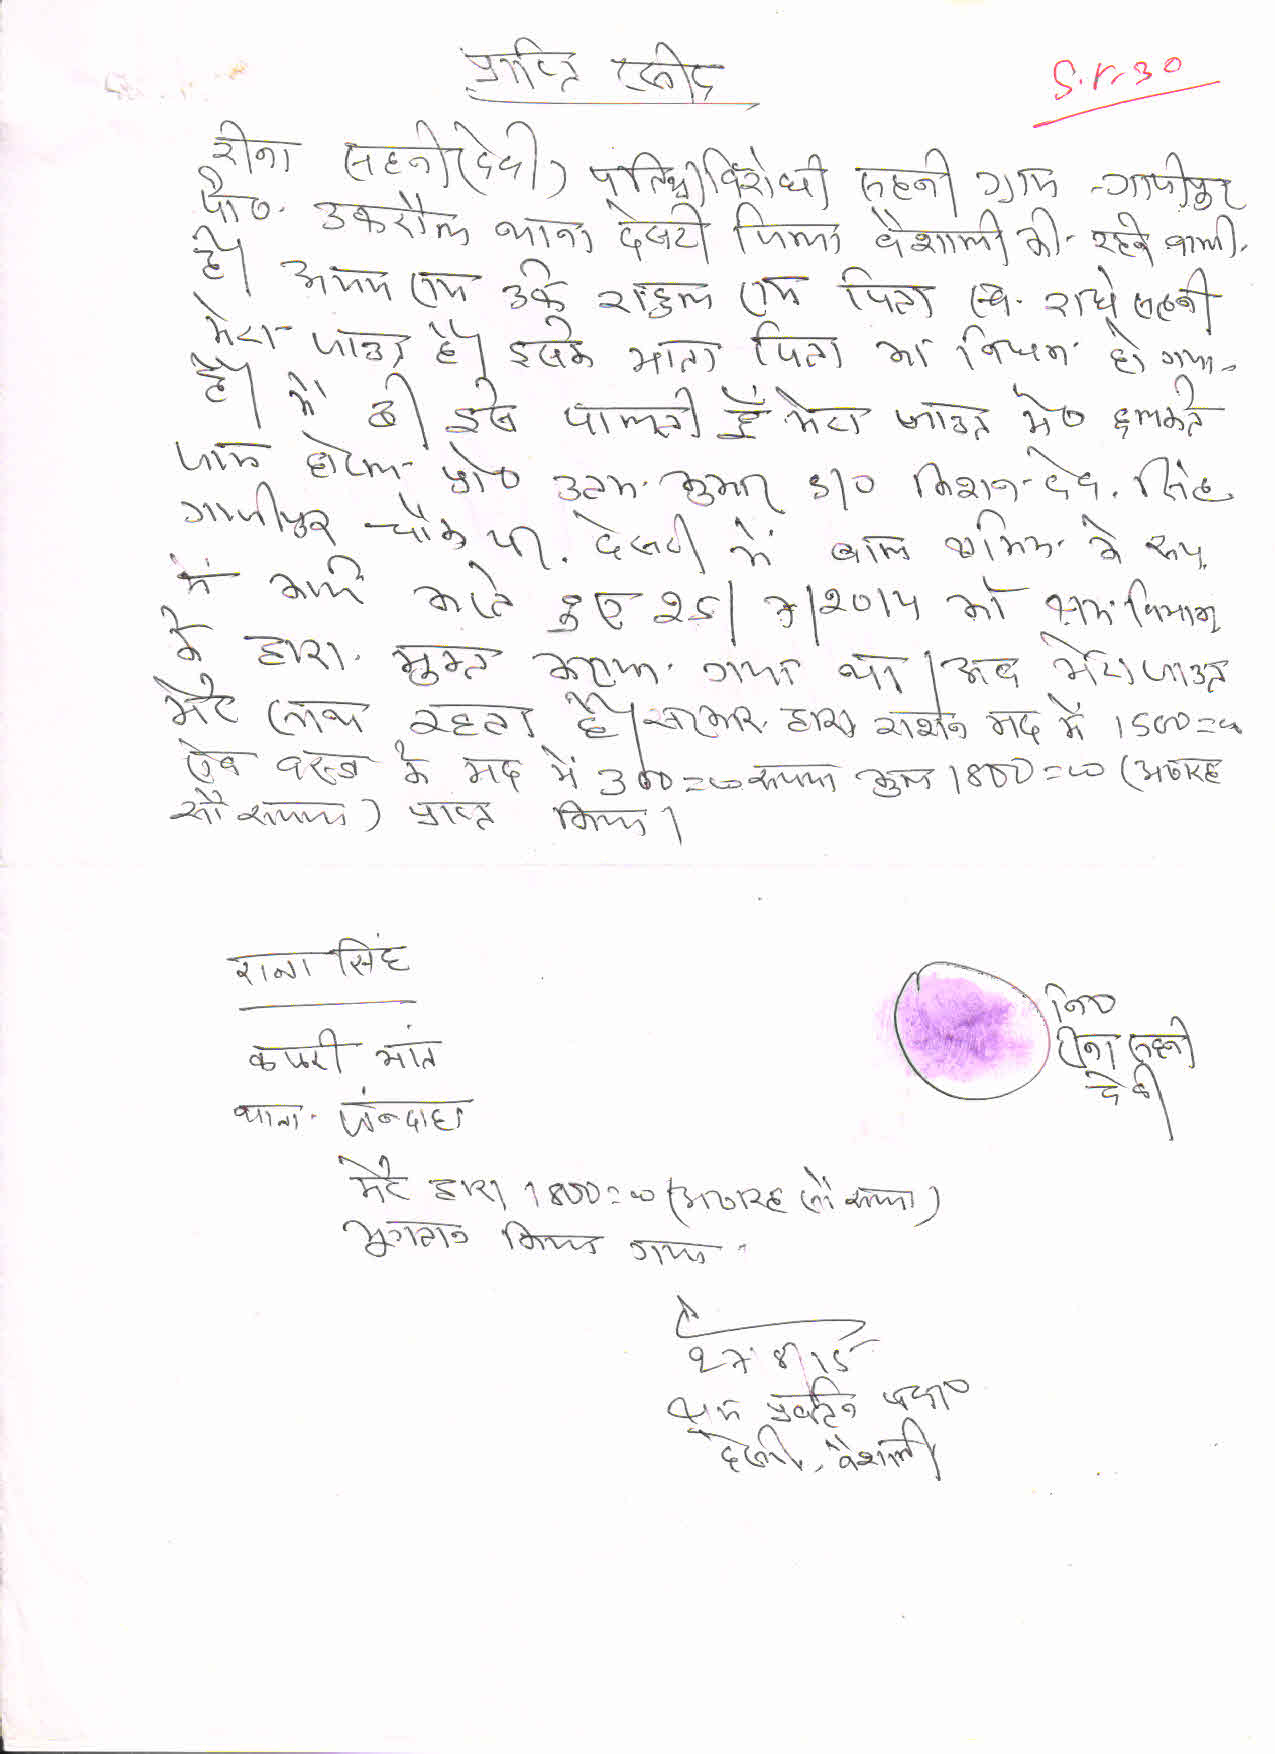 प्राप्ति रसीद
S.r. 30
रीना सहनी (देवी) पति श्री विरोधी सहनी ग्राम - गाजीपुर
पो०. उफरौल थाना देसरी जिला वैशाली की रहने वाली
है। अजय राम उर्फ राहुल राम पिता स्व. राधे सहनी
मेरा भाउन है। इसके माता पिता का निधन हो गया
है। मैं ही इसे पालती हूँ मेरा भाउन मे०
होटल प्रो० उत्तम कुमार S/O किशन देव सिंह
गाजीपुर चौक पर देसरी में बाल श्रमिक के रूप
में कार्य करते हुए को श्रम विभाग
के द्वारा मुक्त कराया गया था। अब मेरा भाउन
मेरे साथ रहता है। सरकार द्वारा राशन मद में 1500=00
एवं वस्त्र के मद में 300=00 रूपया कुल 1800=00 (अठारह
सौ रूपया) प्राप्त किया।
राना सिंह
थाना. जन्दाहा
नि०
रीना सहनी
देवी
मेरे द्वारा 1800=00 (अठारह सौ रूपया)
भुगतान किया गया.
श्रम प्रवर्तन पदा०
देसरी, वैशाली